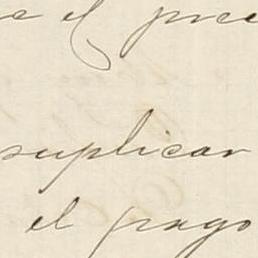 el
suplicar
el pago